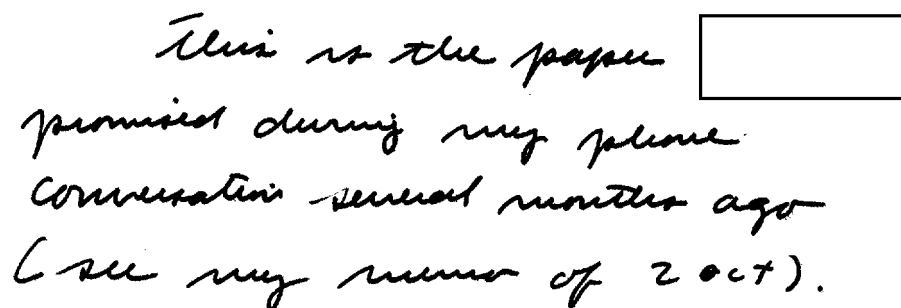 This is the paper
promised during my phone
conversation several months ago
(see my memo of 2 Oct).